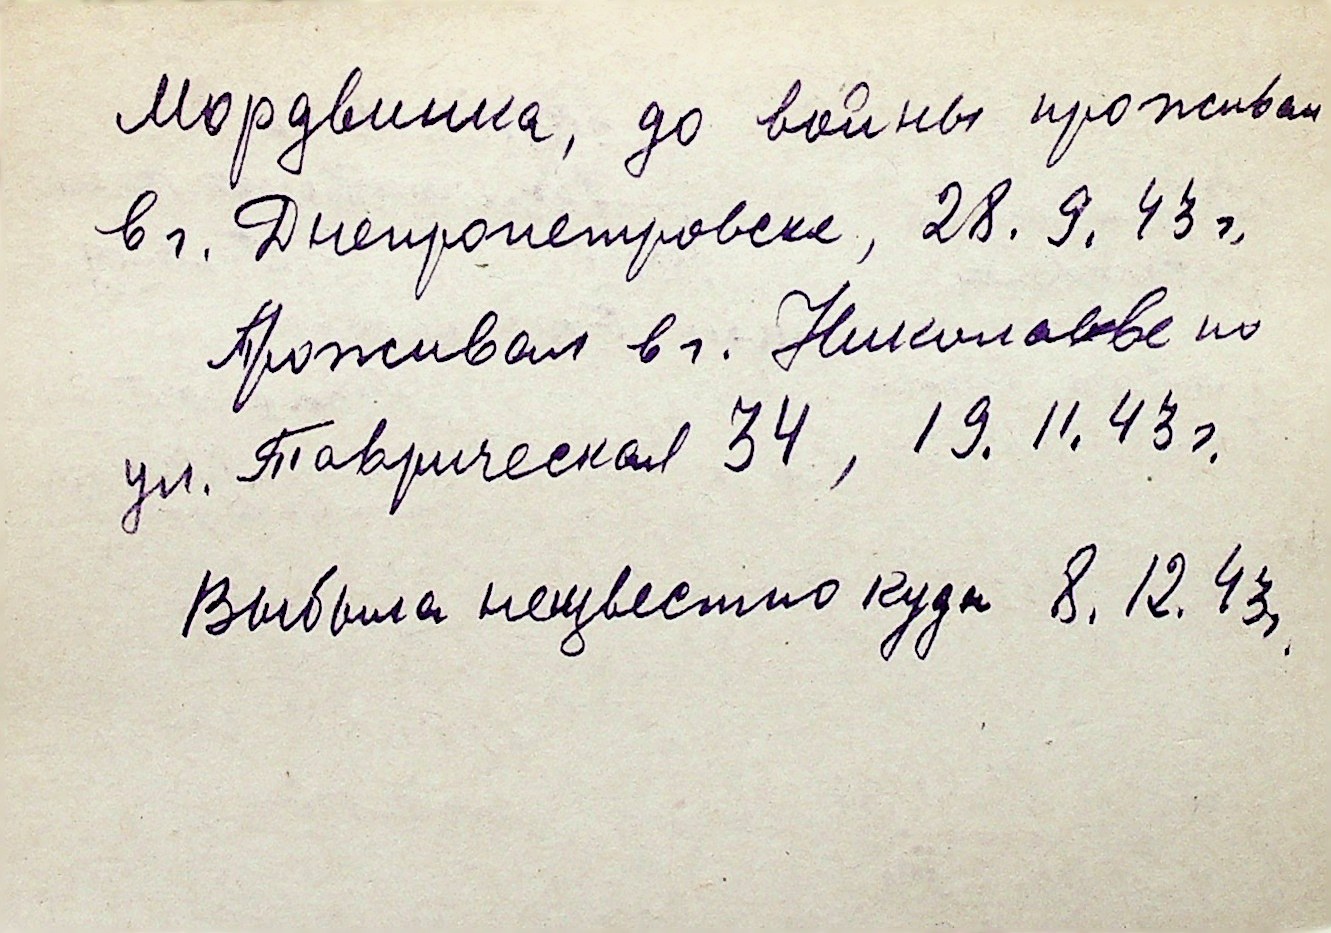 Мордвинка, до войны проживал
в г. Днепропетровске, 28. 9. 43 г.
Проживал в г. Николаеве по
ул. Таврическая 34, 19. 11. 43 г.
Выбыла неизвестно куда 8. 12. 43 г.